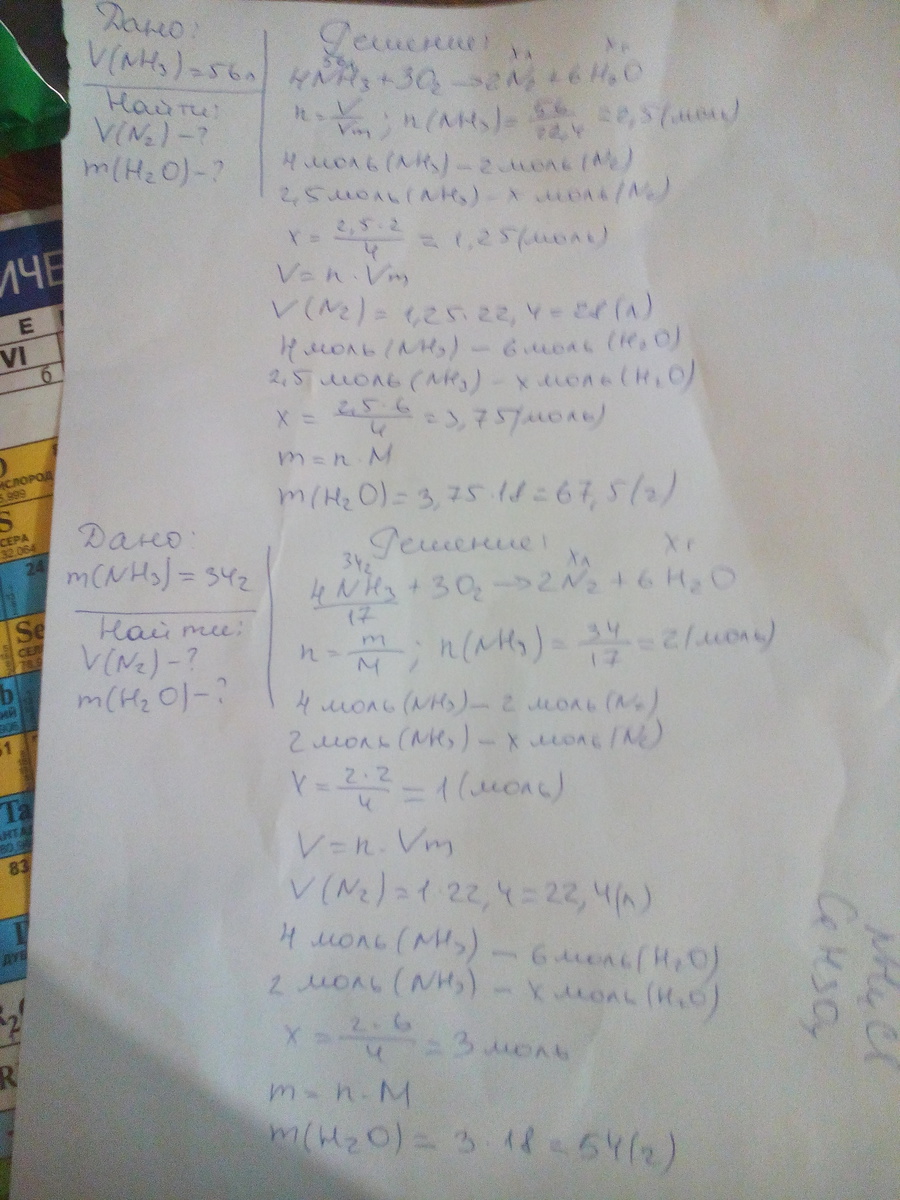 Дано:
V(NH₃)=56л
Найти:
V(N₂)-?
m(H₂O)-?
Решение:
56л xл xг
4NH₃+3O₂→2N₂+6H₂O
n=V/Vm; n(NH₃)=56/22,4=2,5(моль)
4 моль(NH₃)-2 моль(N₂)
2,5 моль(NH₃)-x моль(N₂)
x=2,5·2/4=1,25(моль)
V=n·Vm
V(N₂)=1,25·22,4=28(л)
4 моль(NH₃)-6 моль(H₂O)
2,5 моль(NH₃)-x моль(H₂O)
x=2,5·6/4=3,75(моль)
m=n·M
m(H₂O)=3,75·18=67,5(г)
Дано:
m(NH₃)=34г
Найти:
V(N₂)-?
m(H₂O)-?
Решение:
34г xл xг
4NH₃+3O₂→2N₂+6H₂O
17
n=m/M; n(NH₃)=34/17=2(моль)
4 моль(NH₃)-2 моль(N₂)
2 моль(NH₃)-x моль(N₂)
x=2·2/4=1(моль)
V=n·Vm
V(N₂)=1·22,4=22,4(л)
4 моль(NH₃)-6 моль(H₂O)
2 моль(NH₃)-x моль(H₂O)
x=2·6/4=3 моль
m=n·M
m(H₂O)=3·18=54(г)
NH₄Cl
ИЧЕ
E
VI
б
ИСЛОРОД
5,999
S
СЕРА
32,064
24
Se
СЕЛ
51
Ta
83
ДУБ